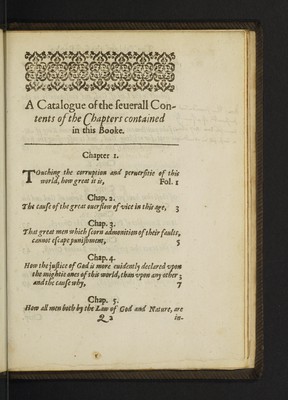 A Catalogue of the ſeuerall Con-
tents of the Chapters contained
in this Booke.
Chapter 1.
TOuching the corruption and peruerſitie of this
world, how great it is, Fol. 1
Chap. 2.
The cauſe of the great ouerflow of vice in this age, 3
Chap. 3.
That great men which ſcorn admonition of their faults,
cannot eſcape puniſhment, 5
Chap. 4.
How the iuſtice of God is more euidently declared vpon
the mightie ones of this world, than vpon any other;
and the cauſe why, 7
Chap. 5.
How all men both by the Law of God and Nature, are
2 in-